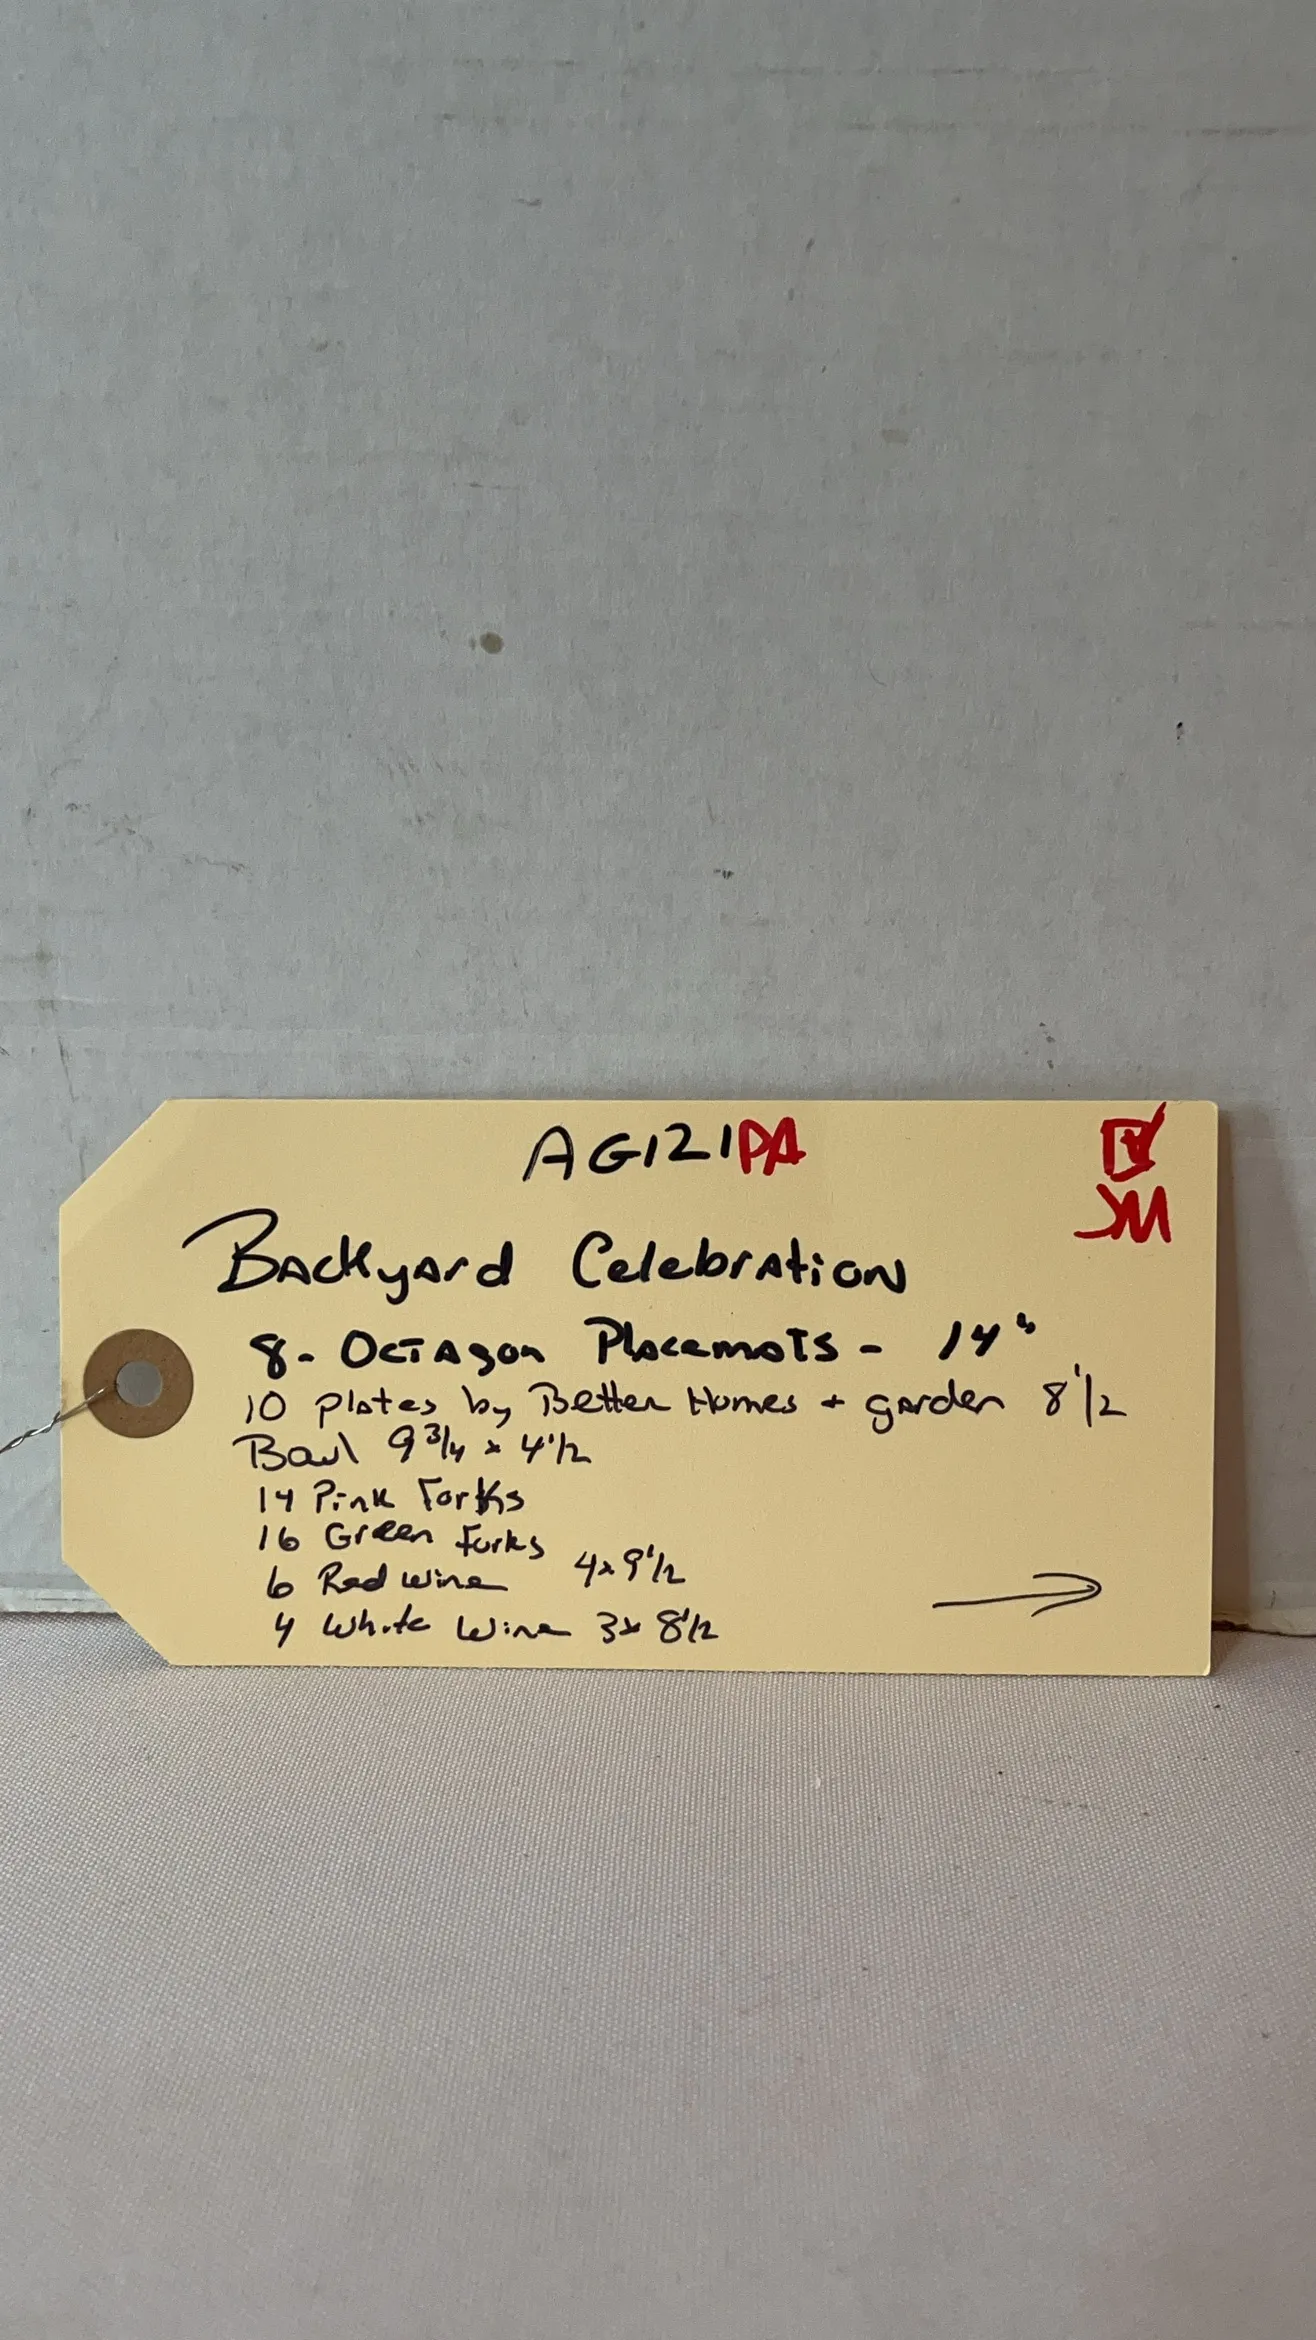 AG121PA
JM
Backyard Celebration
8- Octagon Placemats - 14"
10 plates by Better Homes + garden 8 1/2
Bowl 9 3/4 x 4 1/2
14 Pink Forks
16 Green Forks
6 Red wine 4x9 1/2
4 White Wine 3x 8 1/2